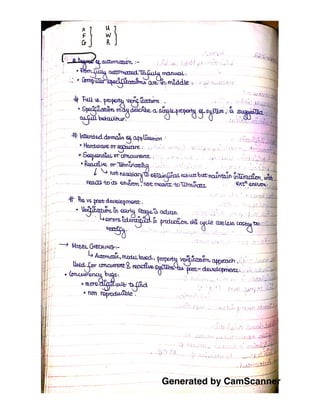 A U
F W
G R
# Degree of automation :-
• From fully automated to fully manual.
• Computer specifications are in middle.
# Full vs. property verification
• Specification may describe a single property of system, or
full behaviour.
# Intended domain of application
• Hardware or software
• Sequential or concurrent
• Reactive or Terminating
↳ not necessary to obtain final result but maintain interaction with
reacts to its environ, not meant to Terminate. ext. environ.
# Pre vs post-development.
• Verification in early stage is advan
↳ errors identified in production dev cycle are less costly to
rectify
→ MODEL CHECKING:-
↳ Automatic, model based, property verification approach.
Used for concurrent & reactive systems post-development.
• Concurrency bugs.
• more difficult to find
• non reproducible.
Generated by CamScanner